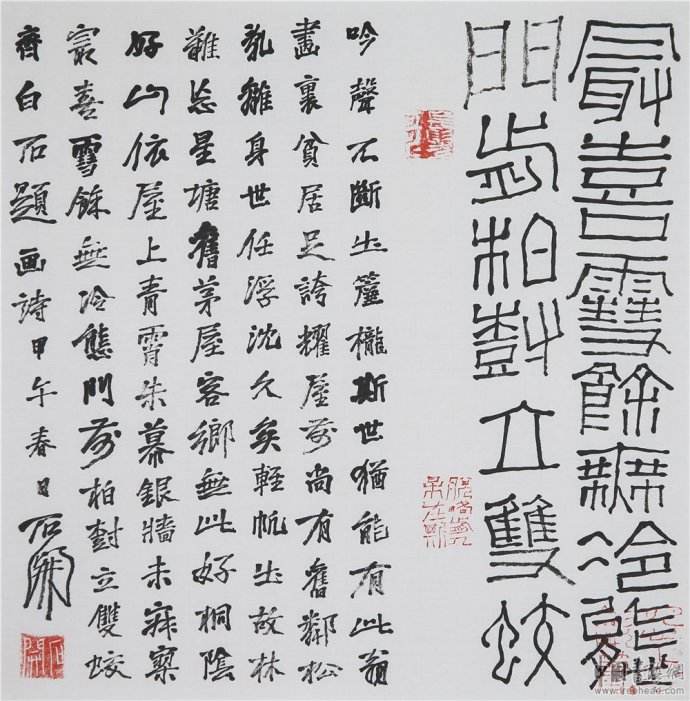 最喜雪餘無冷態
門前柏樹立雙蛟
吟聲不斷出簾櫳斯世猶能有此翁
畫裏貧居足誇耀屋前尚有舊鄰松
亂離身世任浮沈久矣輕帆出故林
難忘星塘舊茅屋客鄉無此好桐陰
好山依屋上青霄朱幕銀牆未寂寥
最喜雪餘無冷態門前柏樹立雙蛟
齊白石題画詩甲午春日石開
www.freehead.com